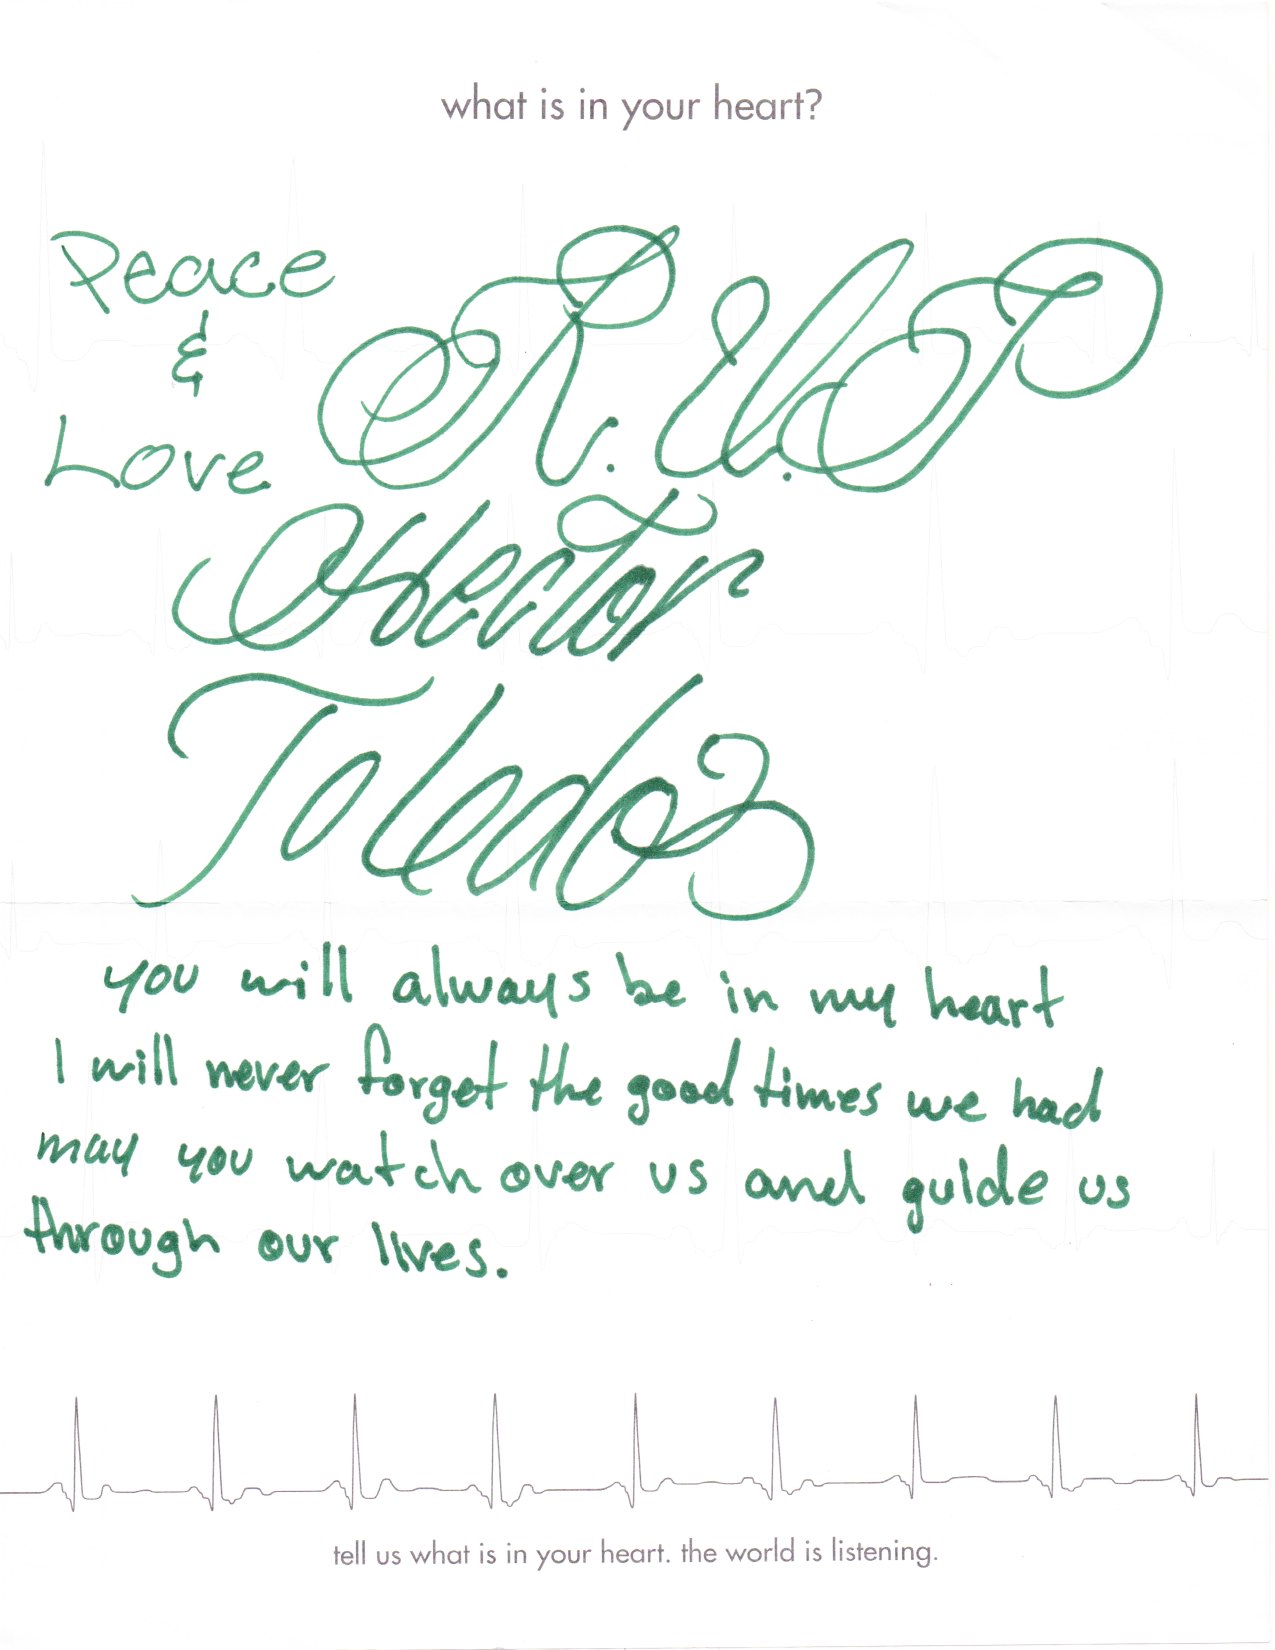 what is in your heart?
Peace
&
Love
R.I.P
Hector
Toledo
you will always be in my heart
I will never forget the good times we had
may you watch over us and guide us
through our lives.
tell us what is in your heart. the world is listening.